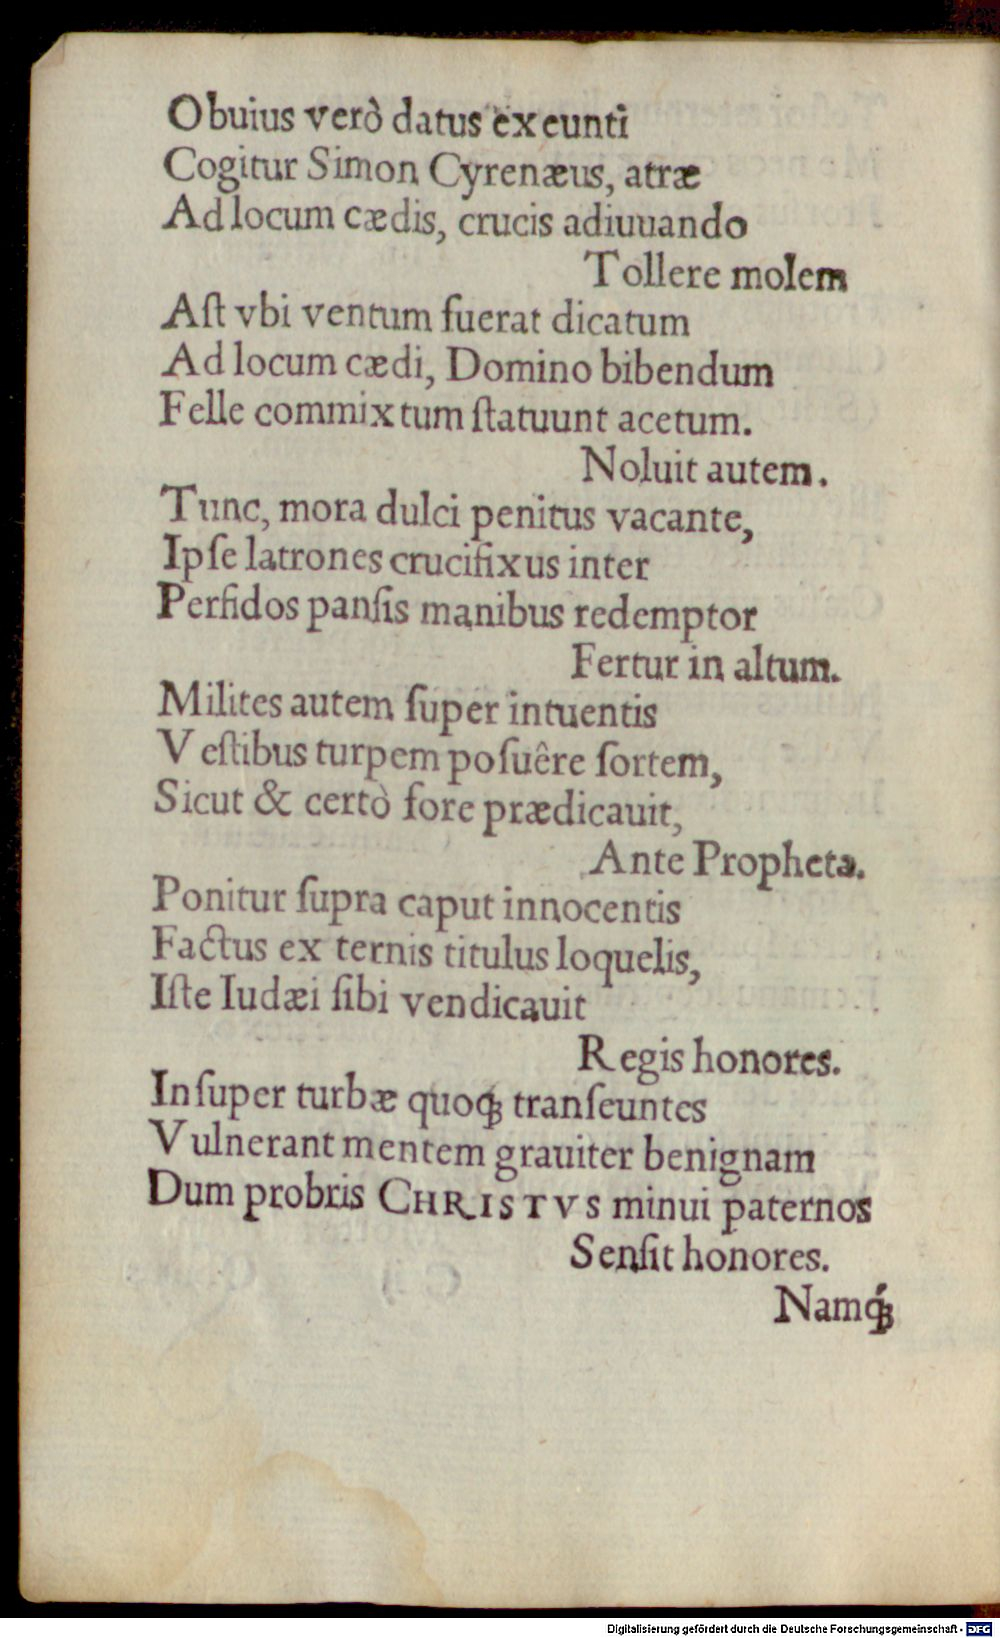 Obuius verò datus exeunti
Cogitur Simon Cyrenæus, atræ
Ad locum cædis, crucis adiuuando
Tollere molem
Aſt vbi ventum fuerat dicatum
Ad locum cædi, Domino bibendum
Felle commixtum ſtatuunt acetum.
Noluit autem.
Tunc, mora dulci penitus vacante,
Ipſe latrones crucifixus inter
Perfidos panſis manibus redemptor
Fertur in altum.
Milites autem ſuper intuentis
Veſtibus turpem poſuêre ſortem,
Sicut & certò fore prædicauit,
Ante Propheta.
Ponitur ſupra caput innocentis
Factus ex ternis titulus loquelis,
Iſte Iudæi ſibi vendicauit
Regis honores.
Inſuper turbæ quoq́ꝫ tranſeuntes
Vulnerant mentem grauiter benignam
Dum probris CHRISTVS minui paternos
Senſit honores.
Namq́ꝫ
Digitalisierung gefördert durch die Deutsche Forschungsgemeinschaft - DFG